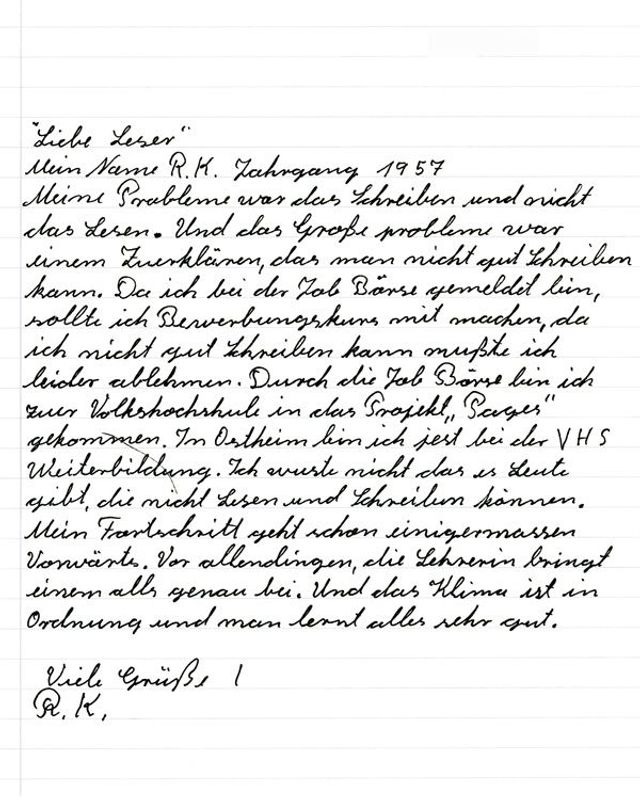 "Liebe Leser"
Mein Name R.K. Jahrgang 1957
Meine Probleme war das Schreiben und nicht
das Lesen. Und das Große probleme war
einem Zuerklären, das man nicht gut Schreiben
kann. Da ich bei der Job Börse gemeldet bin,
sollte ich Bewerbungskurs mit machen, da
ich nicht gut Schreiben kann mußte ich
leider ablehmen. Durch die Job Börse bin ich
zuur Volkshochshule in das Projekt „Pages"
gekommen. In Ostheim bin ich jest bei der VHS
Weiterbildung. Ich wuste nicht das es Leute
gibt, die nicht Lesen und Schreiben können.
Mein Fortschritt geht schon einigermassen
Vorwärts. Vor allendingen, die Lehrerin bringt
einem alls genau bei. Und das Klima ist in
Ordnung und man lernt alles sehr gut.
Viele Grüße !
R.K.